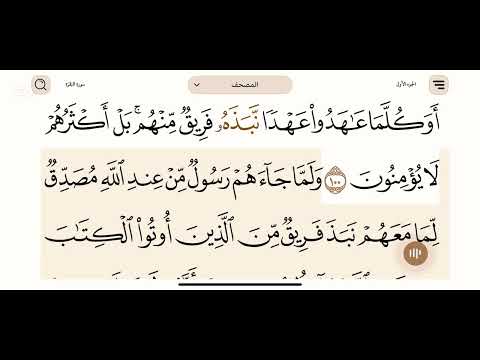 الجزء الأول
المصحف
سورة البقرة
أَوَكُلَّمَا عَٰهَدُوا۟ عَهْدًا نَّبَذَهُۥ فَرِيقٌ مِّنْهُم ۚ بَلْ أَكْثَرُهُمْ
لَا يُؤْمِنُونَ ١٠٠ وَلَمَّا جَآءَهُمْ رَسُولٌ مِّنْ عِندِ ٱللَّهِ مُصَدِّقٌ
لِّمَا مَعَهُمْ نَبَذَ فَرِيقٌ مِّنَ ٱلَّذِينَ أُوتُوا۟ ٱلْكِتَٰبَ